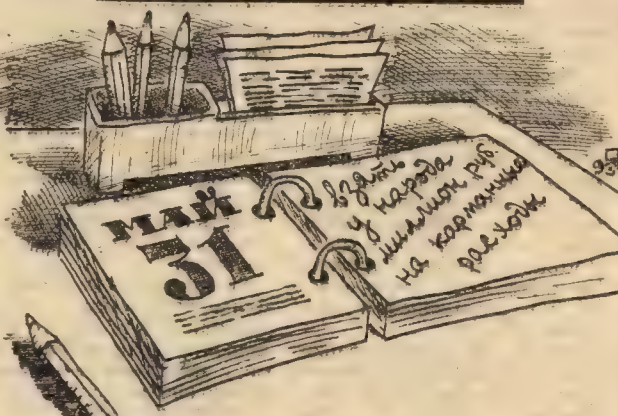 МАЙ
31
взять
у народа
миллион руб.
на карманные
расходы